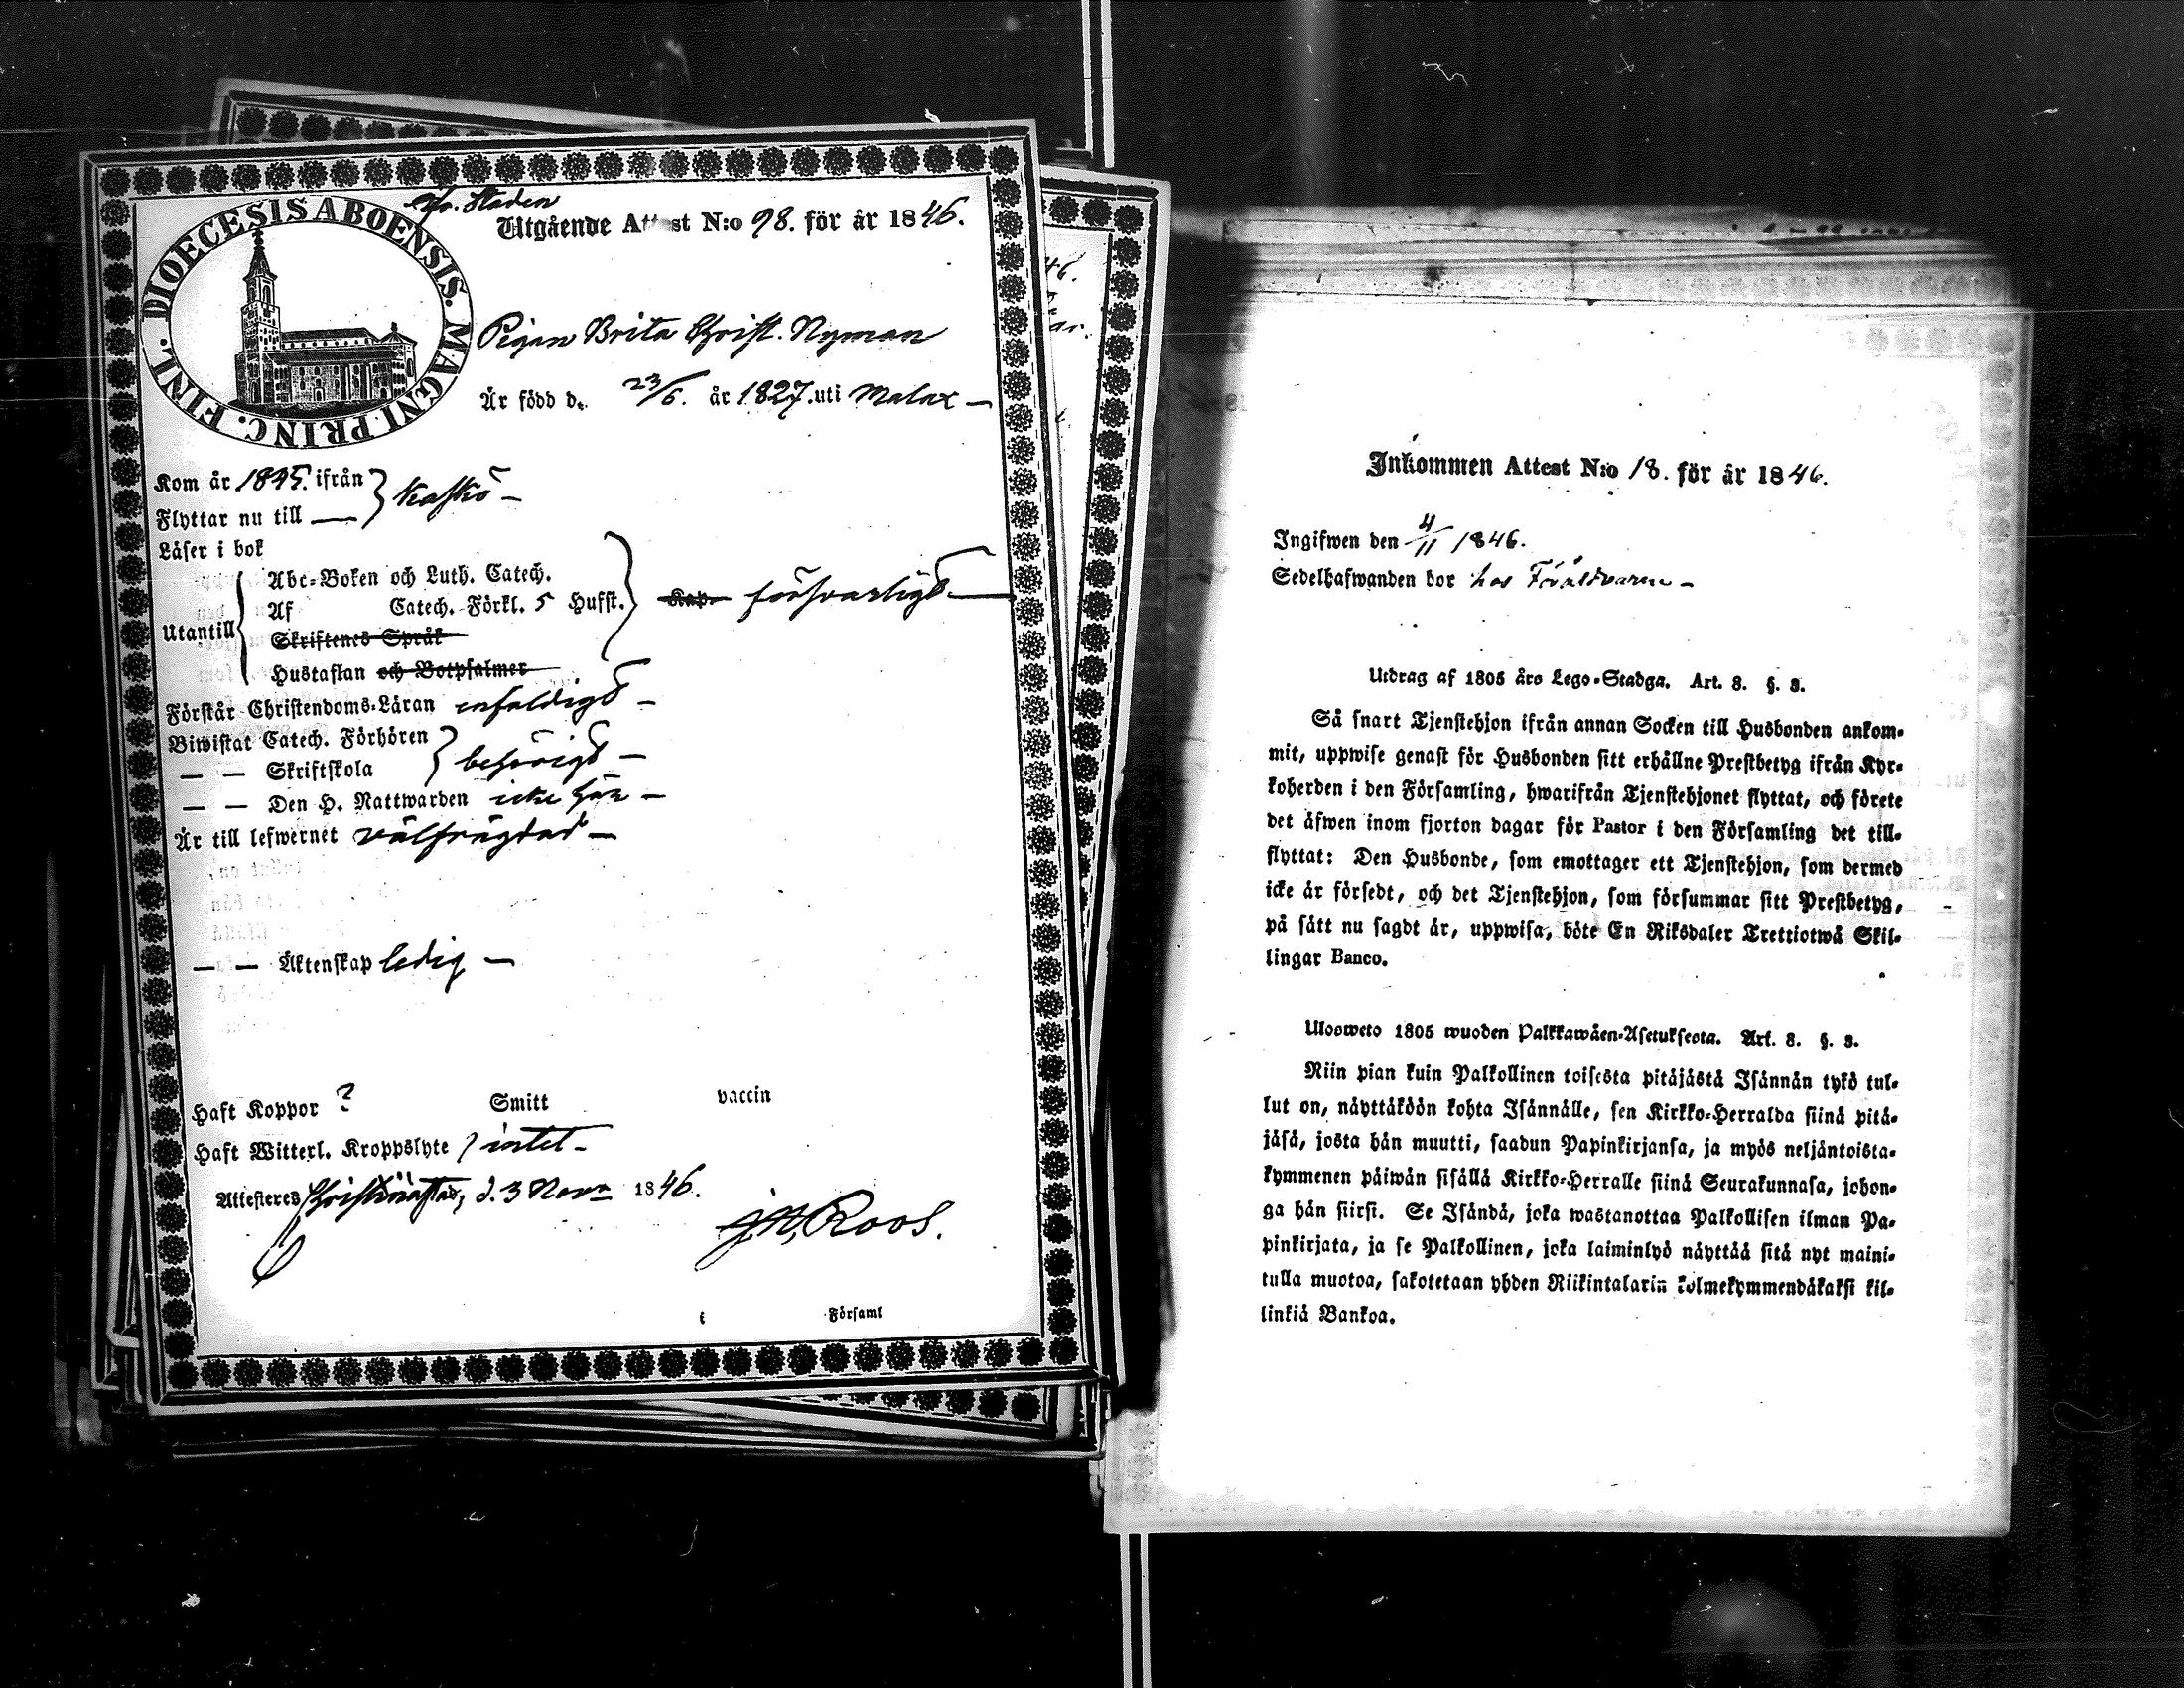 DIOECESIS ABOENSIS. MAGNI. PRINC. FINL.
Staden
Utgående Attest N:o 98. för år 1846.
Pigan Brita Christ. Nyman
Är född d. 23/6. år 1827. uti Malax —
Kom år 1845. ifrån } Kaskö —
Flyttar nu till —
Läser i bok
Utantill { Abc-Boken och Luth. Catech.
Af Catech. Förkl. 5 Hufst. } Kap. försvarligt —
Skriftenes Språk
Hustaflan och Botpsalmer
Förstår Christendoms-Läran enfaldigt —
Biwistat Catech. Förhören } behörigt —
— — Skriftskola
— — Den H. Nattwarden icke här —
Är till lefwernet välfrägdad —
— — Äktenskap ledig —
Haft Koppor ? Smitt vaccin
Haft Witterl. Kroppslyte / intet —
Attesteras Christinæstad, d. 3 Nov. 1846.
Roos.
i Församl
Inkommen Attest N:o 18. för år 1846.
Ingifwen den 4/11 1846.
Sedelhafwanden bor hos Föräldrarne —
Utdrag af 1805 års Lego-Stadga. Art. 8. §. 3.
Så snart Tjenstehjon ifrån annan Socken till Husbonden ankom-
mit, uppwise genast för Husbonden sitt erhållne Prestbetyg ifrån Kyr-
koherden i den Församling, hwarifrån Tjenstehjonet flyttat, och förete
det äfwen inom fjorton dagar för Pastor i den Församling det till-
flyttat: Den Husbonde, som emottager ett Tjenstehjon, som dermed
icke är försedt, och det Tjenstehjon, som försummar sitt Prestbetyg,
på sätt nu sagdt är, uppwisa, böte En Riksdaler Trettiotwå Skil-
lingar Banco.
Ulosweto 1805 wuoden Palkkawäen-Asetuksesta. Art. 8. §. 3.
Niin pian kuin Palkollinen toisesta pitäjästä Isännän tykö tul-
lut on, näyttäköön kohta Isännälle, sen Kirkko-Herralda siinä pitä-
jäsä, josta hän muutti, saadun Papinkirjansa, ja myös neljäntoista-
kymmenen päiwän sisällä Kirkko-Herralle siinä Seurakunnasa, johon-
ga hän siirsi. Se Isändä, joka wastanottaa Palkollisen ilman Pa-
pinkirjata, ja se Palkollinen, joka laiminlyö näyttää sitä nyt maini-
tulla muotoa, sakotetaan yhden Riikintalarin kolmekymmendäkaksi kil-
linkiä Bankoa.